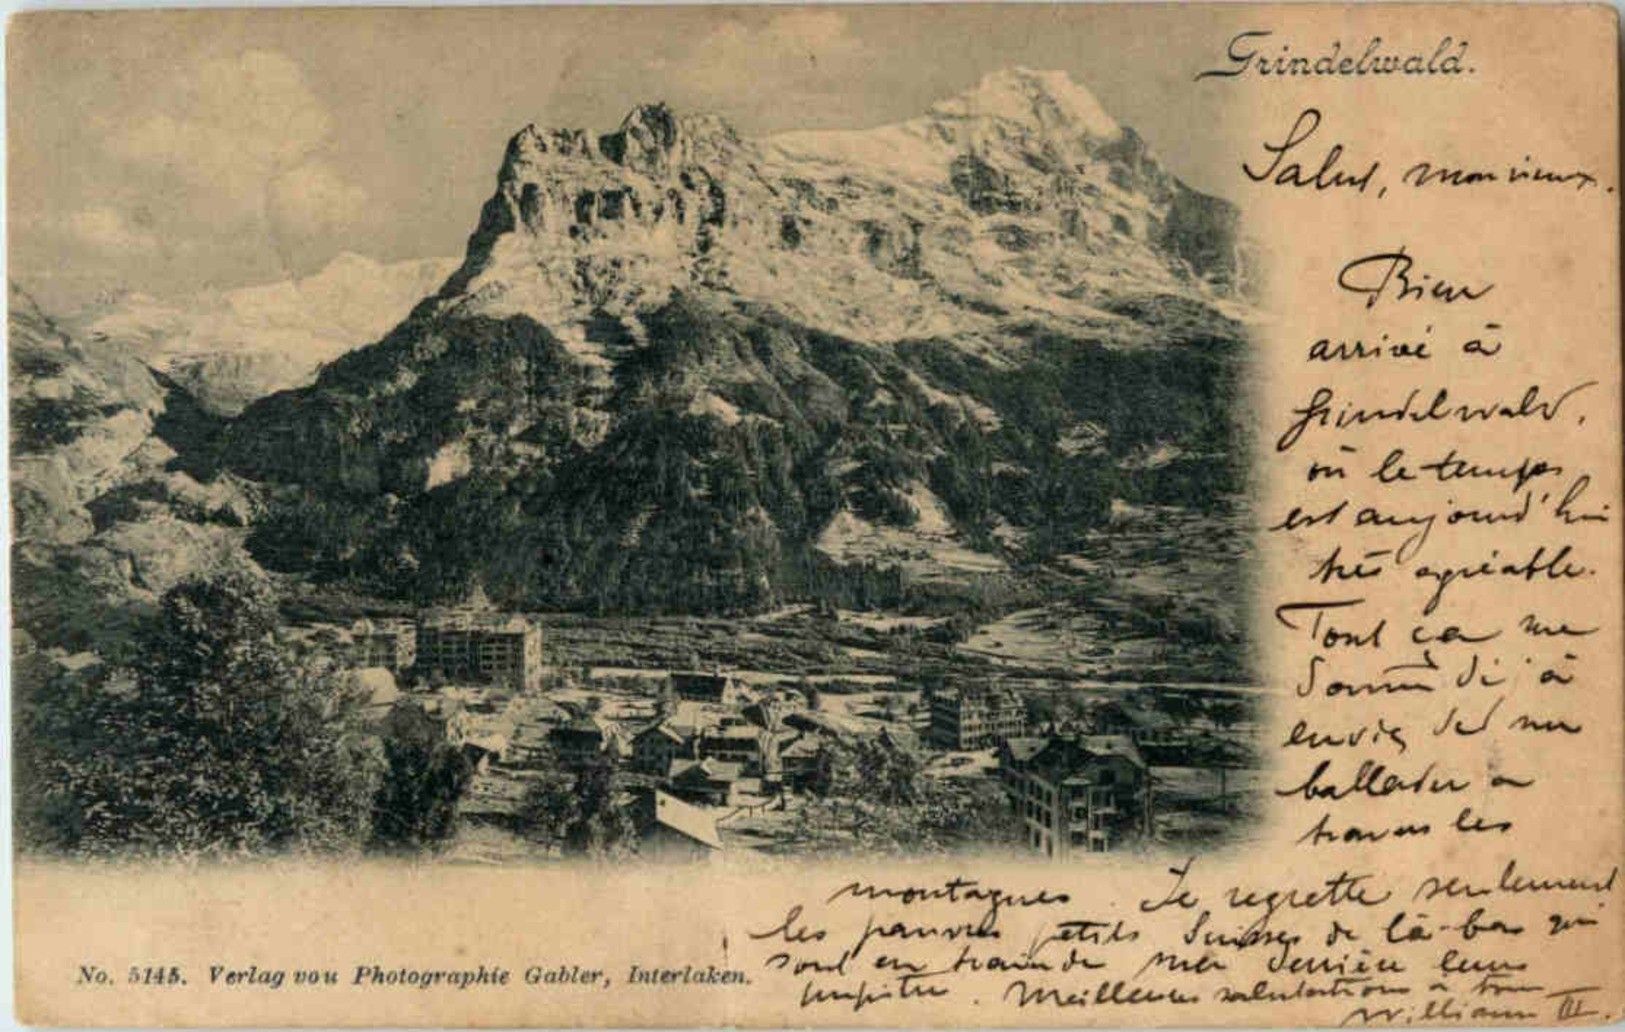 Grindelwald.
Salut, mon vieux.
Bien
arrivé à
Grindelwald,
où le temps
est aujourd'hui
très agréable.
Tout ça me
donne déjà
envie de me
ballader a
travers les
montagnes. Je regrette seulement
les pauvres petits Suisses de là-bas qui
sont en train de derrière leurs
pupitres. Meilleures salutations à tous
William III.
No. 5145. Verlag von Photographie Gabler, Interlaken.